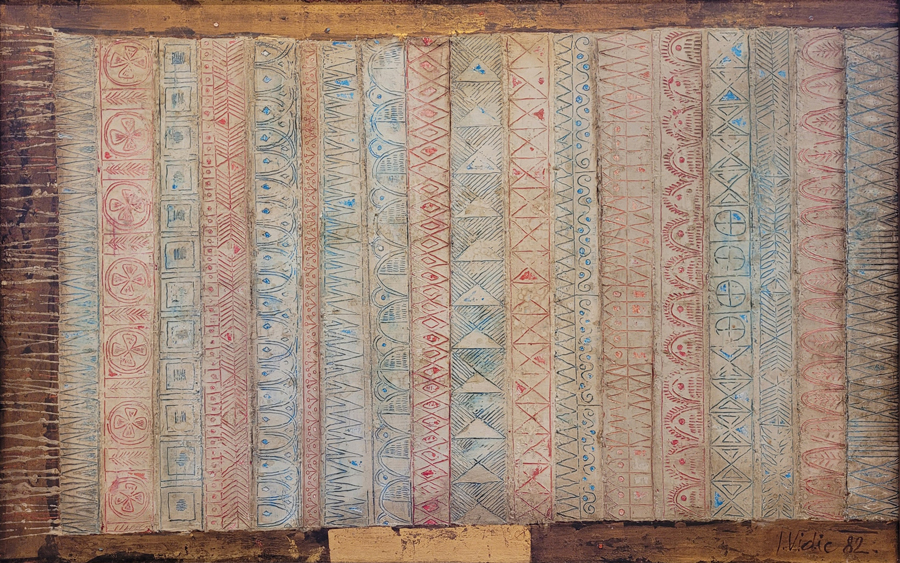 I. Vidic 82.